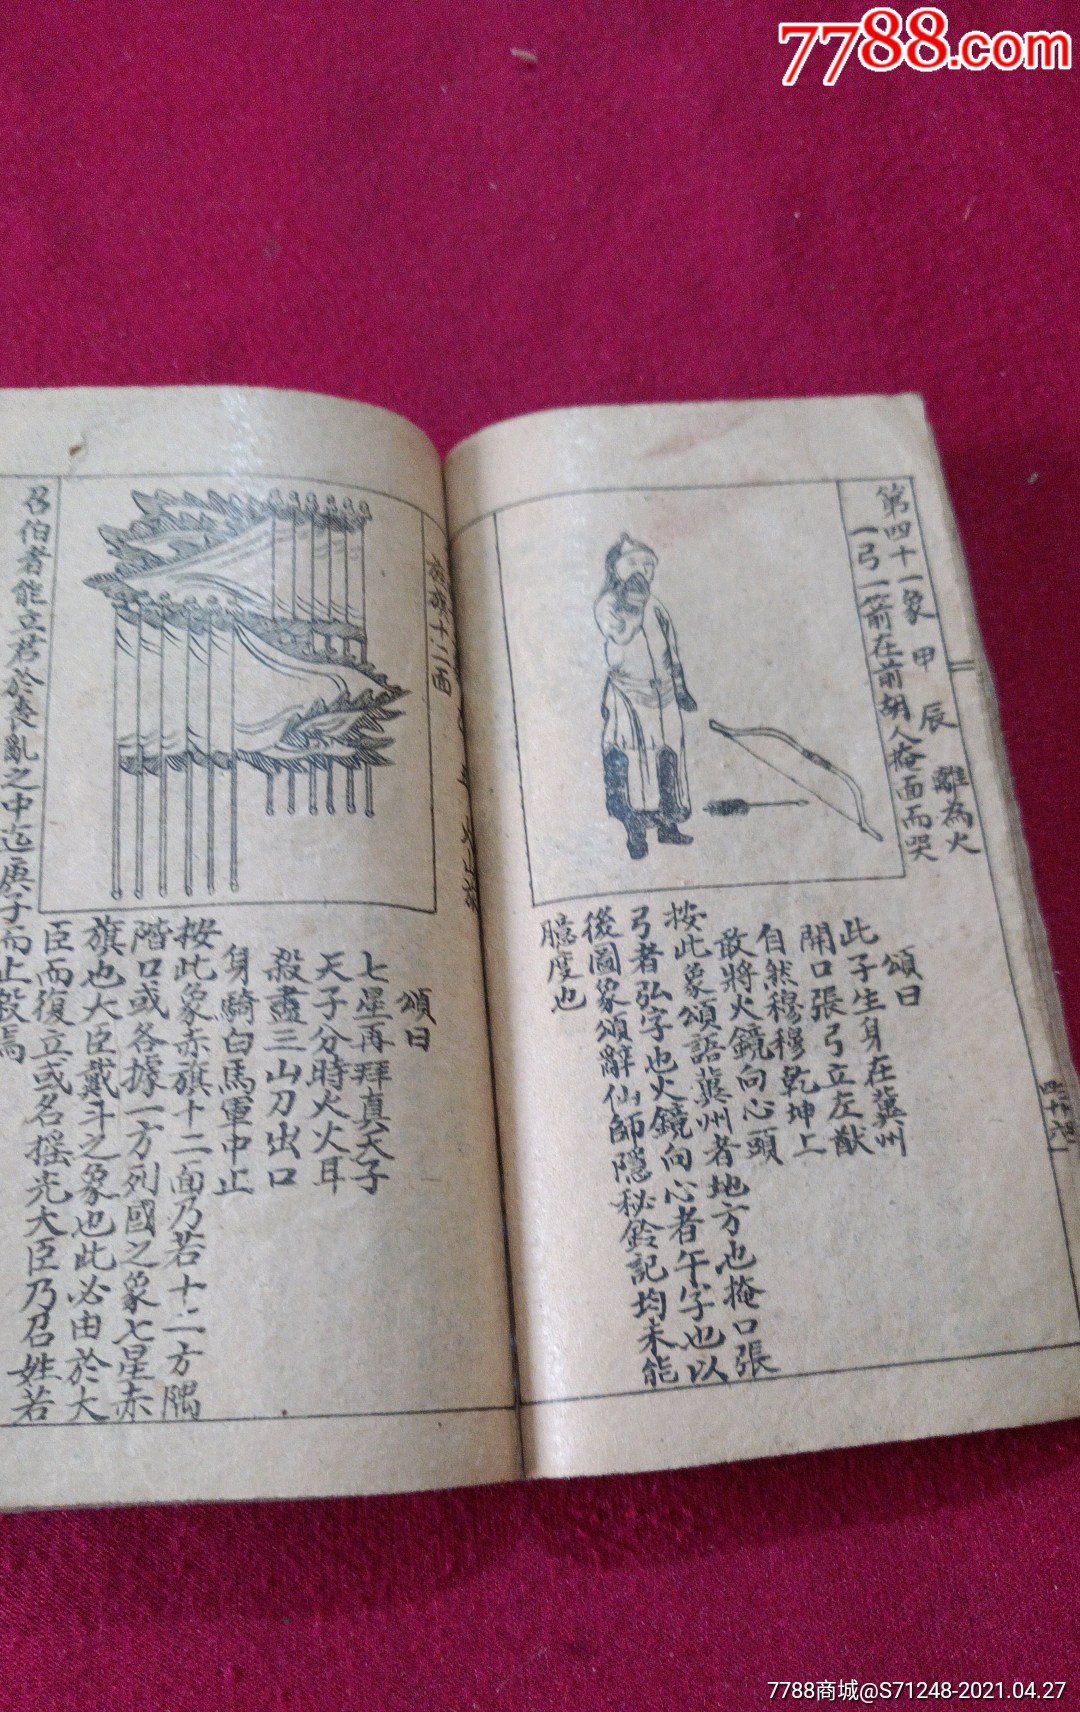 7788.com
第四十一象 甲辰 離為火
一弓一箭在前胡人掩面而哭
頌曰
此子生身在冀州
開口張弓立左猷
自然穆穆乾坤上
敢將火鏡向心頭
按此象頌語冀州者地方也掩口張
弓者弘字也火鏡向心者午字也以
後圖象頌辭仙師隱秘鈴記均未能
臆度也
旗十二面
頌曰
七星再拜真天子
天子分時火火耳
殺盡三山刀出口
身騎白馬軍中止
按此象赤旗十二面乃若十二方隅
階口或各據一方列國之象七星赤
旗也大臣戴斗之象也此必由於大
臣而復立或名搖光大臣乃召姓若
召伯者能立君於喪亂之中迄庚子而止殺焉
7788商城@S71248-2021.04.27